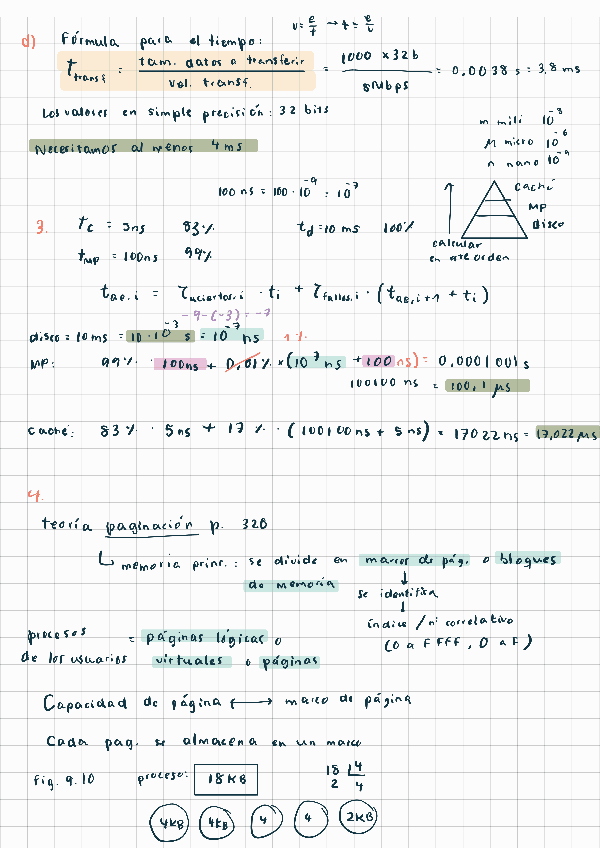 v = e/t → t = e/v
d) Fórmula para el tiempo:
t transf = tam. datos a transferir / vel. transf. = 1000 × 32b / 8Mbps = 0,0038 s = 3,8 ms
Los valores en simple precisión: 32 bits
m mili 10^-3
Necesitamos al menos 4 ms
M micro 10^-6
n nano 10^-9
100 ns = 100·10^-9 = 10^-7
caché
MP
disco
calcular
en este orden
3. tc = 5ns 83% td = 10 ms 100%
tMP = 100ns 99%
tae,i = τaciertos,i · ti + τfallos,i · (tae,i+1 + ti)
-9-(-3) = -7
disco = 10ms = 10·10^-3 s = 10^-7 ns 1%
MP: 99% · 100ns + 0,01% × (10^7 ns + 100 ns) = 0,0001001s
100100 ns = 100,1 µs
caché: 83% · 5ns + 17% · (100100ns + 5ns) = 17022ns = 17,022 µs
4.
teoría paginación p. 328
memoria princ.: se divide en marcos de pág. o bloques
de memoria
se identifica
índice / nº correlativo
(0 a FFFF, 0 a F)
procesos = páginas lógicas o
de los usuarios virtuales o páginas
Capacidad de página ⟷ marco de página
Cada pag. se almacena en un marco
fig. 9.10 proceso: 18KB
18 4
2 4
4KB 4KB 4 4 2KB